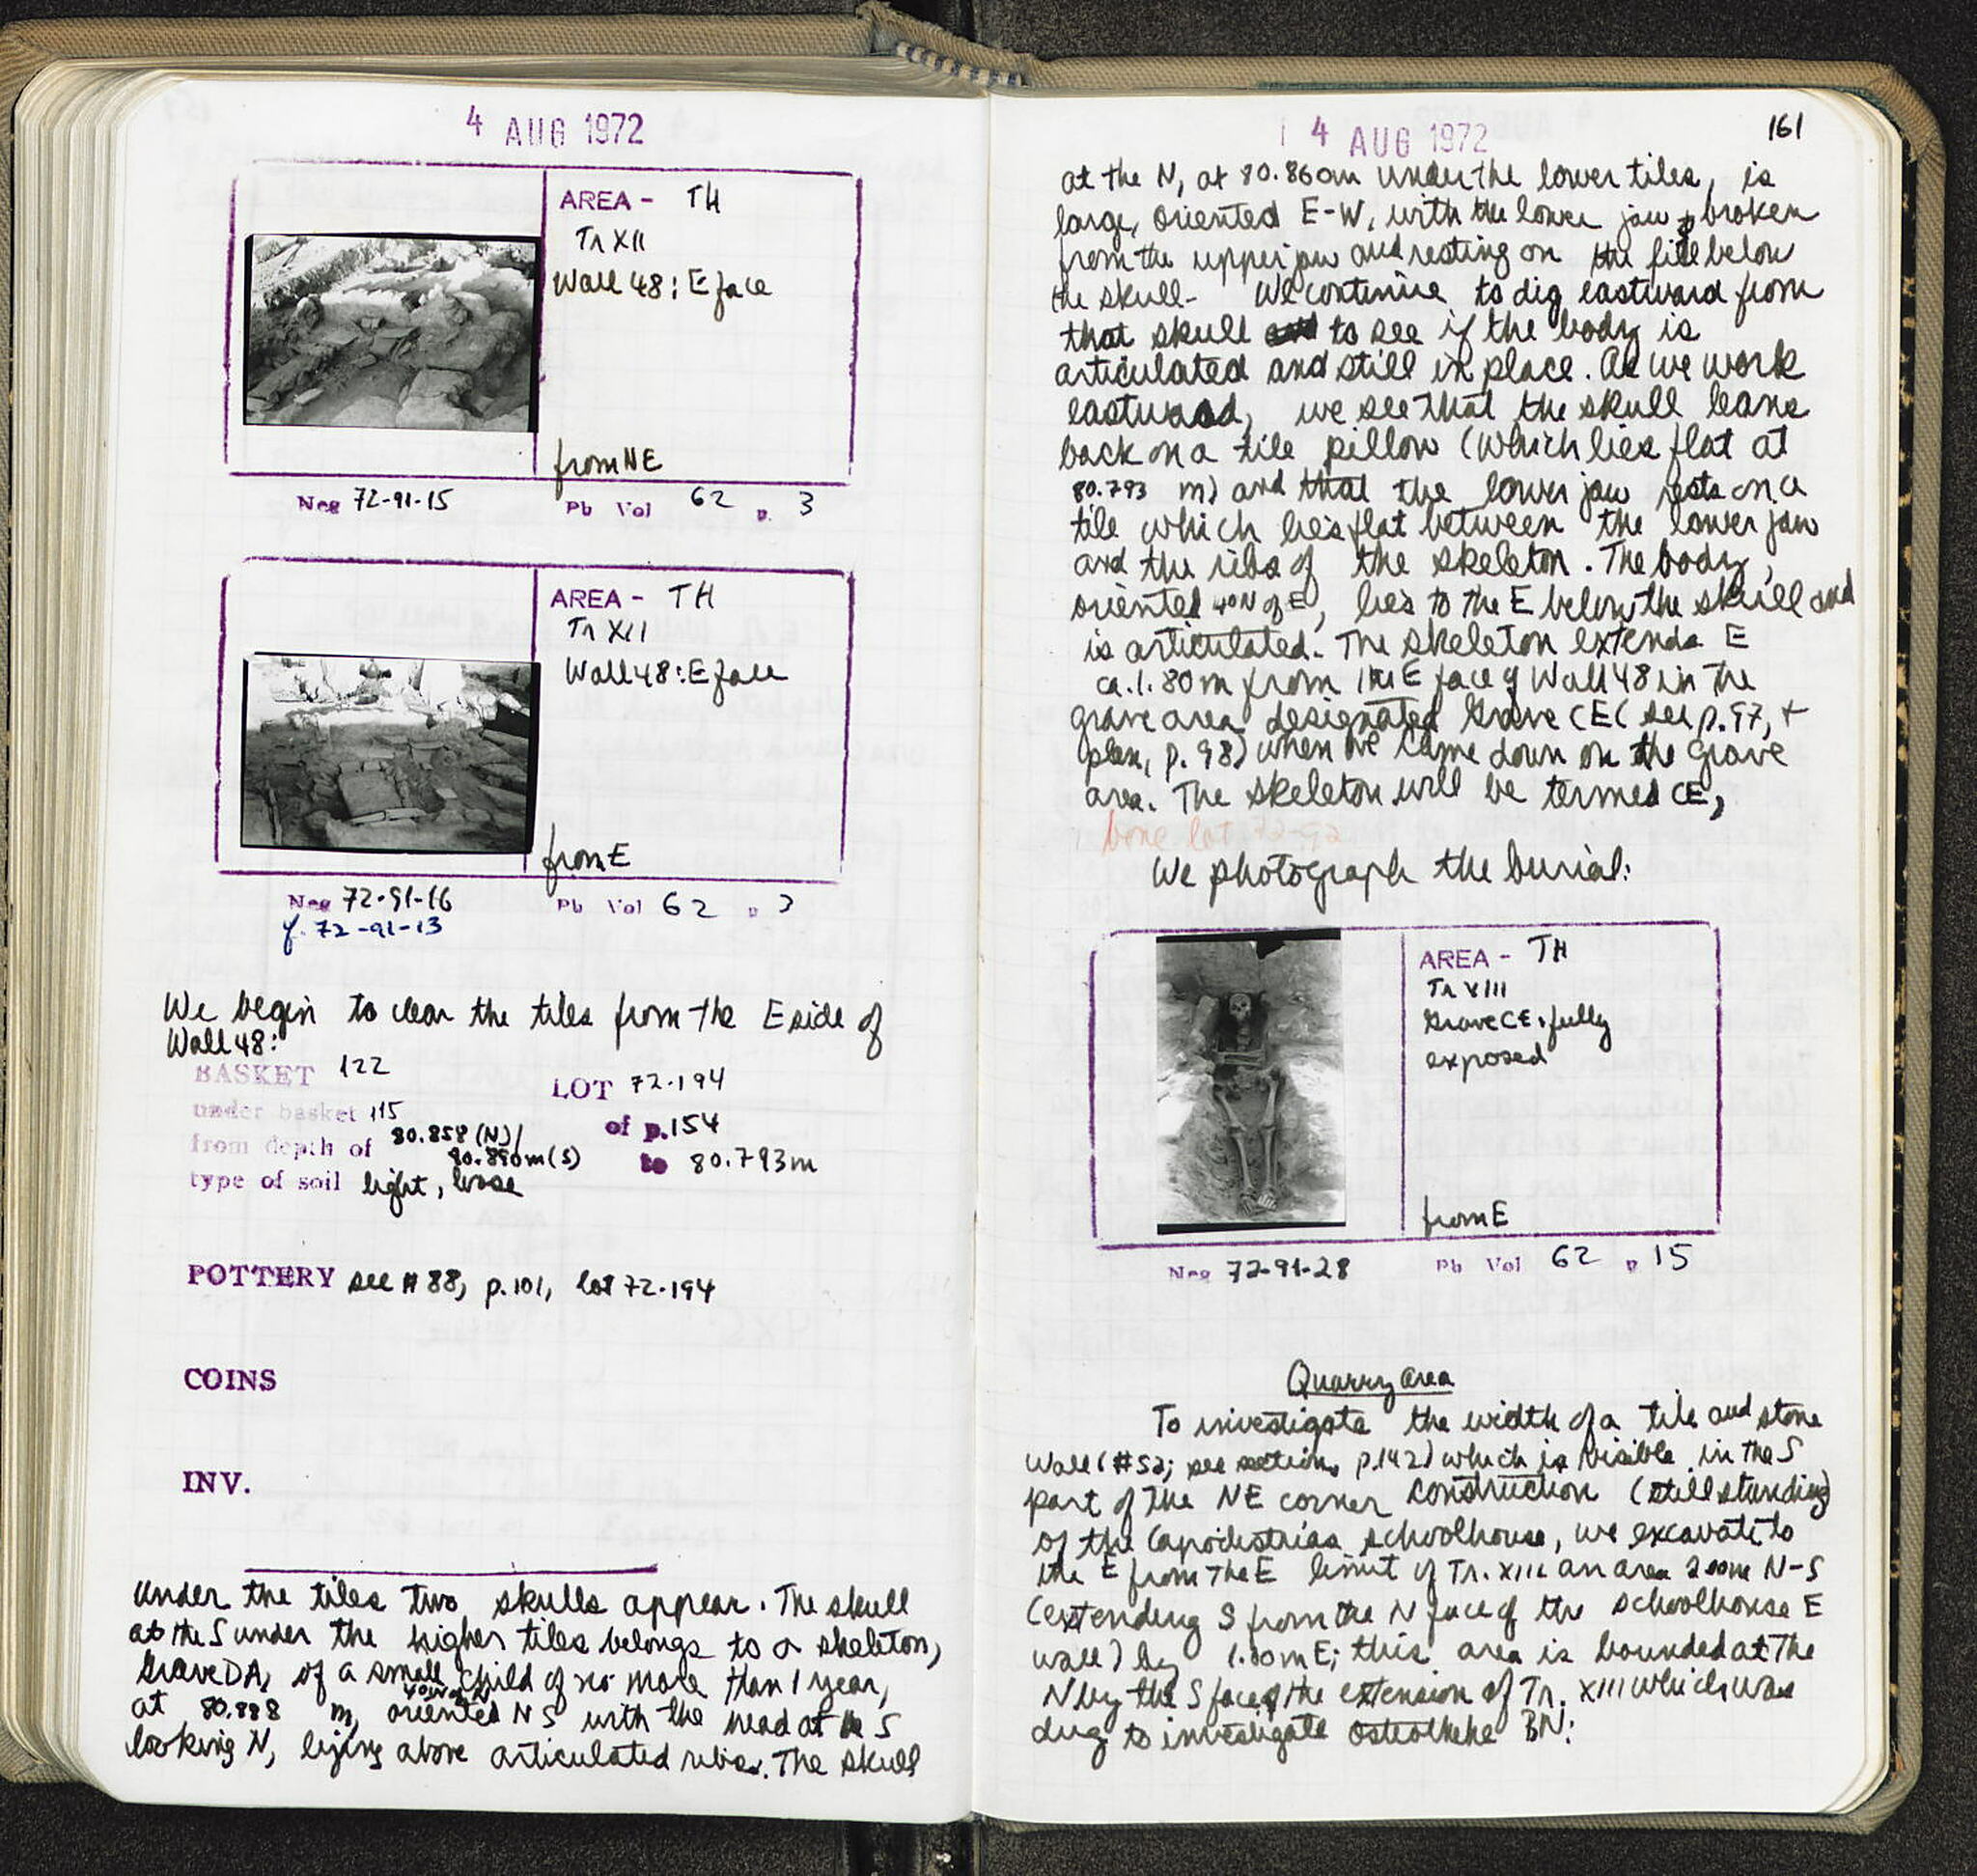 4 AUG 1972
AREA - TH
Tr XII
Wall 48: E face
from NE
Neg 72-91-15 Pb Vol 62 p. 3
AREA - TH
Tr XII
Wall 48: E face
from E
Neg 72-91-16 Pb Vol 62 p 3
cf. 72-91-13
We begin to clear the tiles from the E side of
Wall 48:
BASKET 122 LOT 72-194
under basket 115 of p. 154
from depth of 80.858 (N)/
80.890m (S) to 80.793m
type of soil light, loose
POTTERY see # 88, p. 101, lot 72-194
COINS
INV.
Under the tiles two skulls appear. The skull
at the S under the higher tiles belongs to a skeleton,
Grave DA, of a small child of no more than 1 year,
at 80.888 m, oriented NS with the head at the S
looking N, lying above articulated ribs. The skull
4 AUG 1972
161
at the N, at 80.860m under the lower tiles, is
large, oriented E-W, with the lower jaw broken
from the upper jaw and resting on the fill below
the skull - We continue to dig eastward from
that skull to see if the body is
articulated and still in place. As we work
eastward, we see that the skull leans
back on a tile pillow (which lies flat at
80.793 m) and that the lower jaw rests on a
tile which lies flat between the lower jaw
and the ribs of the skeleton. The body,
oriented 40N of E, lies to the E below the skull and
is articulated. The skeleton extends E
ca. 1.80m from the E face of Wall 48 in the
grave area designated Grave CE (see p. 97, +
plan, p. 98) when we came down on the grave
area. The skeleton will be termed CE,
bone lot 72-92
We photograph the burial:
AREA - TH
Tr XIII
Grave CE, fully
exposed
from E
Neg 72-91-28 Pb Vol 62 p 15
Quarry Area
To investigate the width of a tile and stone
Wall (#52; see section, p. 142) which is visible in the S
part of the NE corner construction (still standing)
of the Capodistrias schoolhouse, we excavate to
the E from the E limit of Tr. XIII an area 2.00m N-S
(extending S from the N face of the schoolhouse E
wall) by 1.00m E; this area is bounded at the
N by the S face of the extension of Tr. XIII which was
dug to investigate Osteotheke BN: